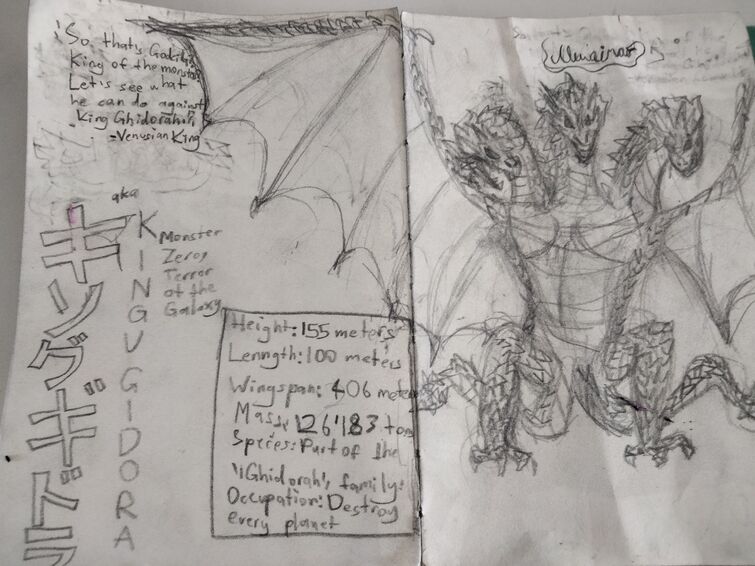 "So, that's Godzilla,
King of the monsters
Let's see what
he can do against
King Ghidorah."
-Venusian King
aka
キングギドラ
KINGUGIDORA
Monster
Zero,
Terror
of the
Galaxy
Height: 155 meters
Lenngth: 100 meters
Wingspan: 406 meters
Mass: 126'183 tons
Species: Part of the
"Ghidorah" family
Occupation: Destroy
every planet